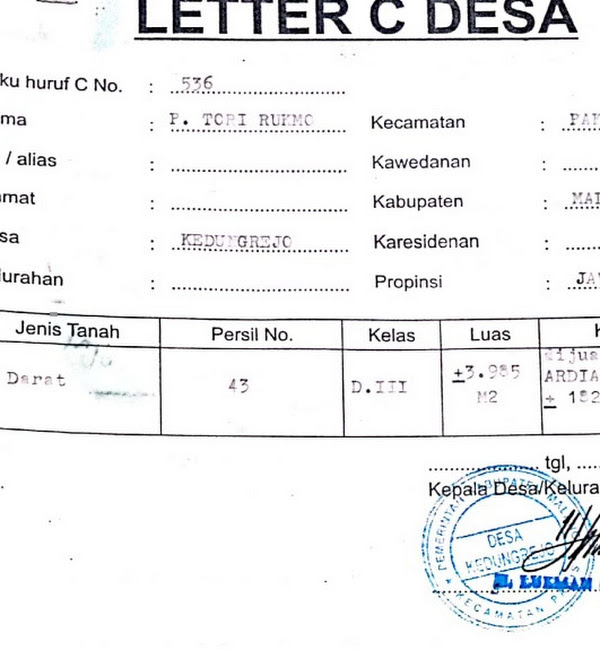 LETTER C DESA
ku huruf C No. : 536
ma : P. TORI RUKMO Kecamatan : PAK
/ alias : Kawedanan :
mat : Kabupaten : MAL
sa : KEDUNGREJO Karesidenan :
lurahan : Propinsi : JA
Jenis Tanah Persil No. Kelas Luas
Darat 43 D.III ±3.985 M2 dijua
ARDIA
± 182
tgl,
Kepala Desa/Kelura
DESA
KEDUNGREJO
LUKMAN
PEMERINTAH KABUPATEN MALANG
KECAMATAN